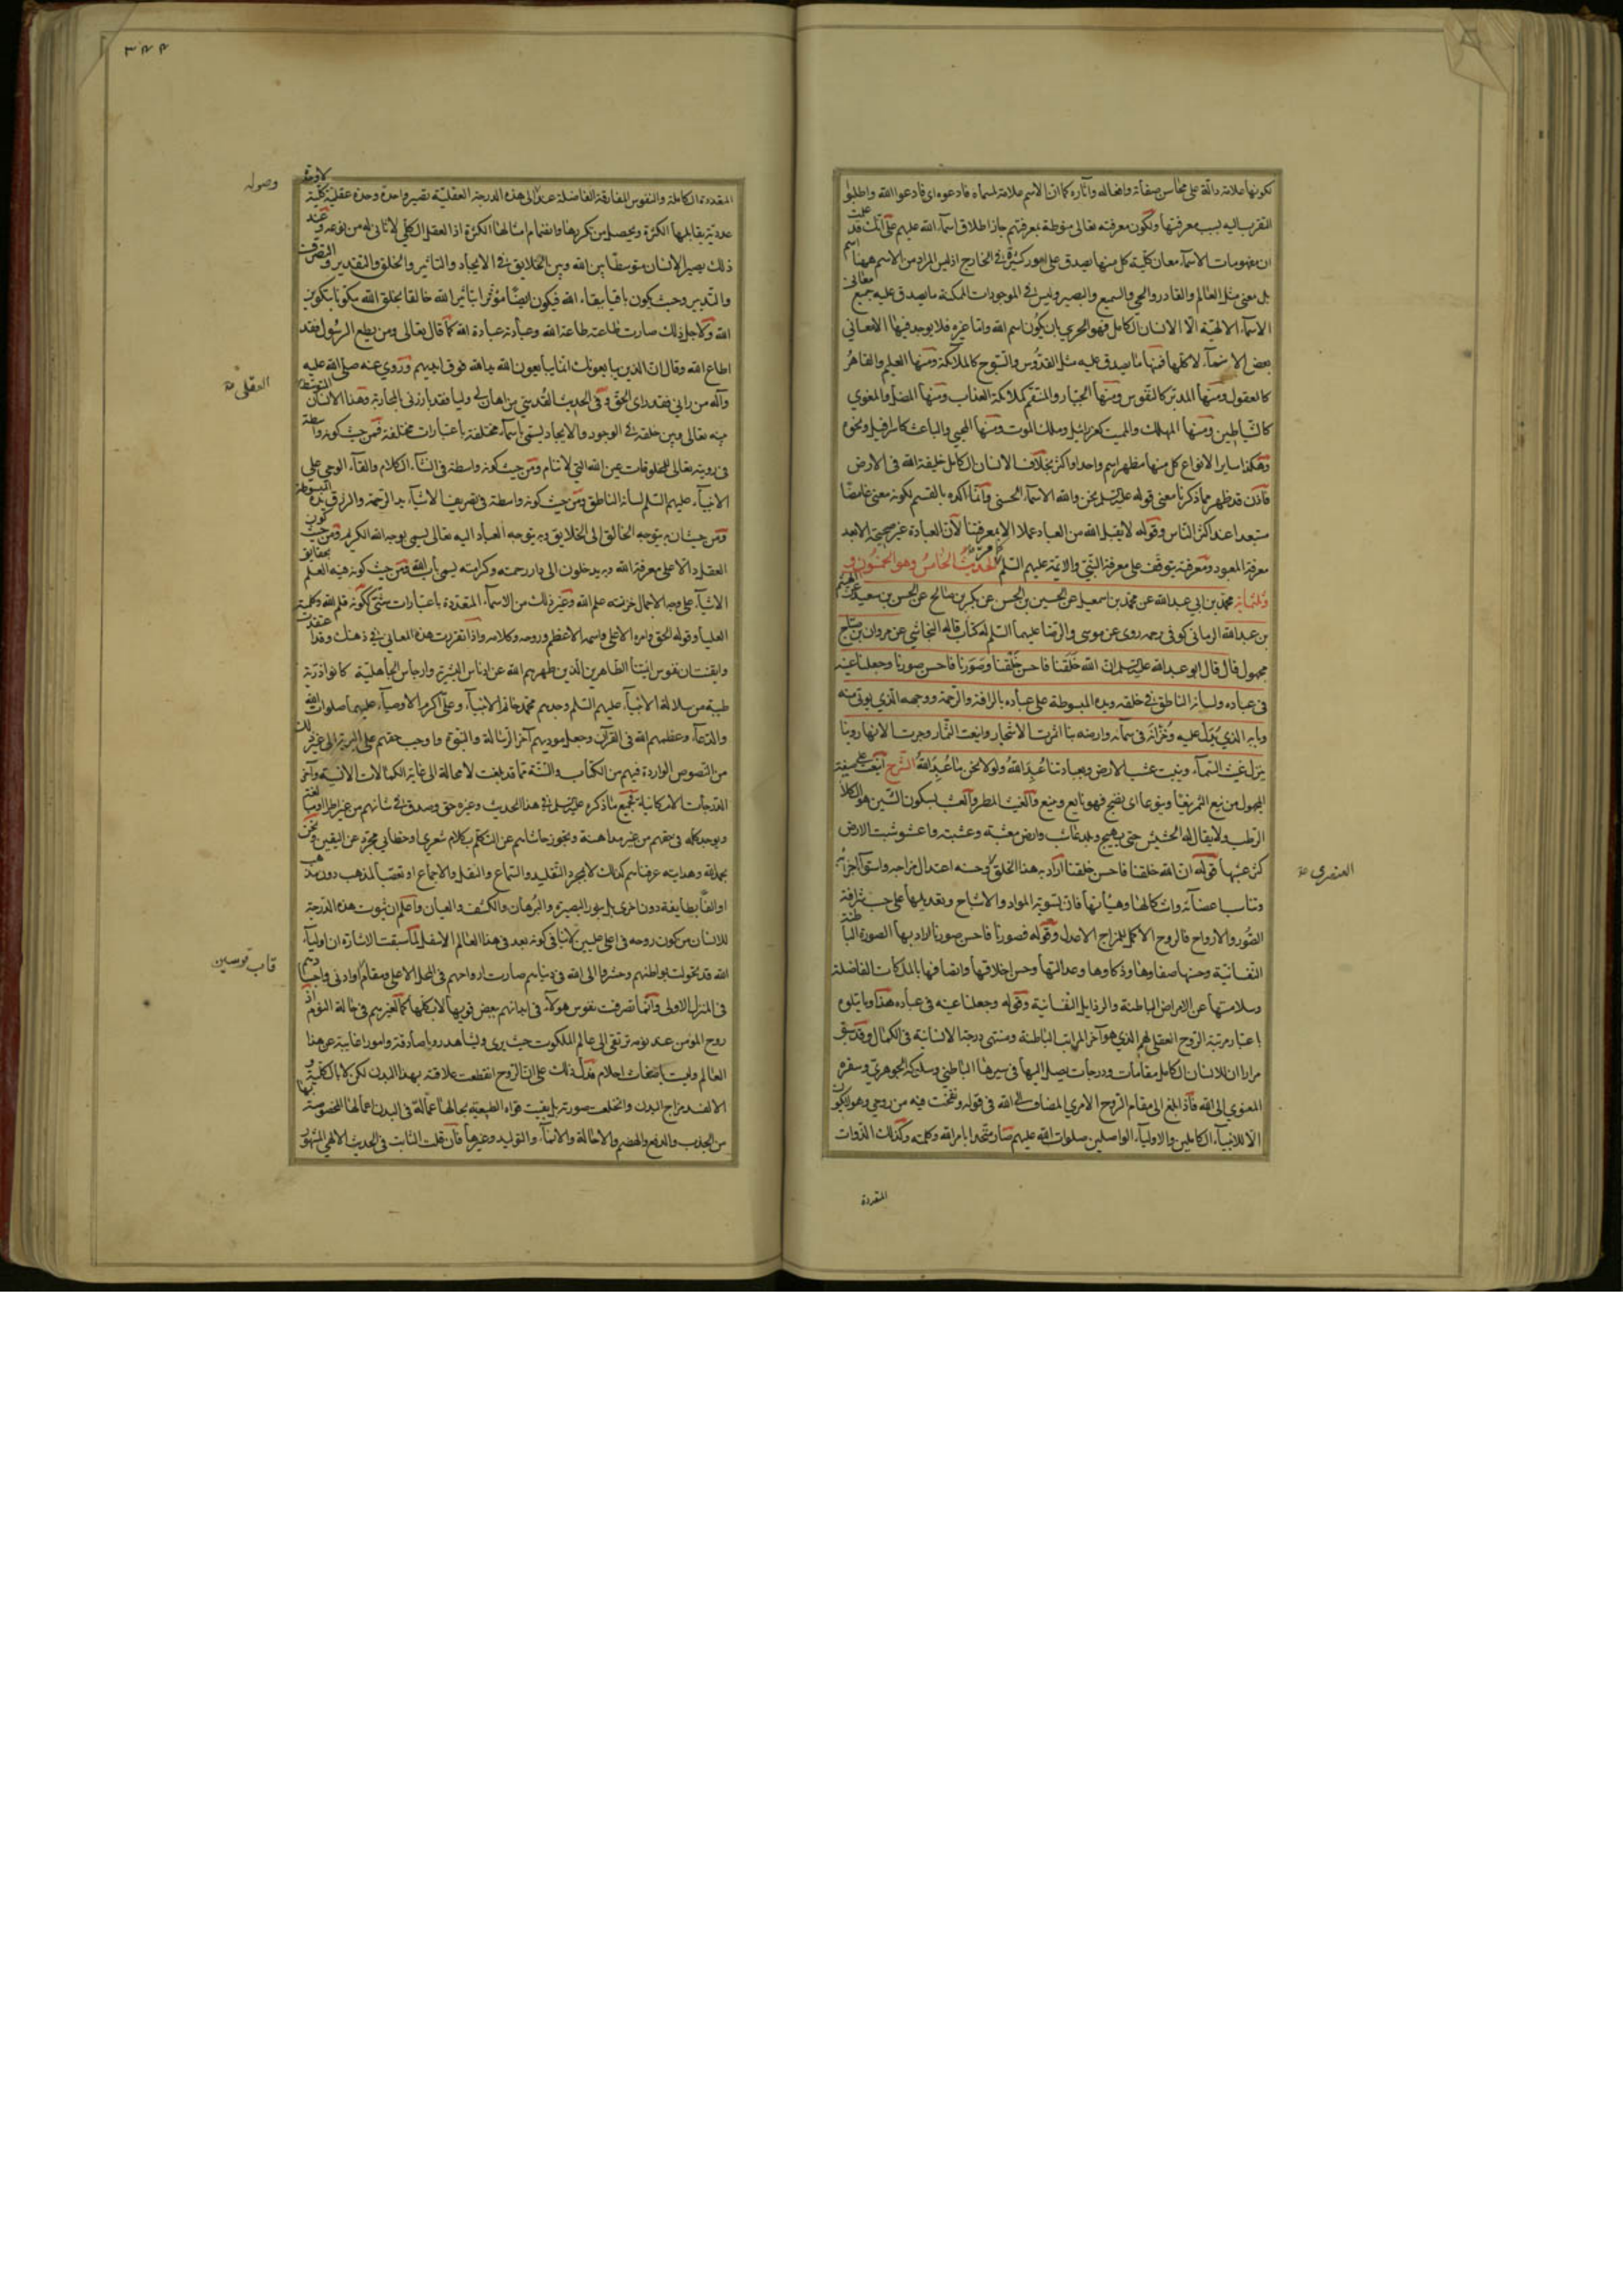 لكونها علامة دالّة على محاسن صفاته وافعاله وآثاره كما ان الاسم علامة لمسماه فادعوه اى فادعوا الله واطلبوا
التقرب اليه بسبب معرفتها ولكون معرفته تعالى منوطة بمعرفتهم جاز اطلاق اسماء الله عليهم على انك قد علمت
ان مفهومات الاسماء معان كلية كل منها يصدق على امور كثيرة فى الخارج اذ ليس المراد من الاسم ههنا اسم
بل معنى مثل العالم والقادر والحي والسميع والبصير وليس فى الموجودات الممكنة ما يصدق عليه جميع معانى
الاسماء الالهية الا الانسان الكامل فهو الحري بان يكون اسم الله واما غيره فلا يوجد فيها الا معانى
بعض الاسماء لا كلها فمنها ما يصدق عليه مثل القدوس والسبوح كالملائكة ومنها العليم والقاهر
كالعقول ومنها المدبر كالنفوس ومنها الجبار والمنتقم كملائكة العذاب ومنها المضل والمغوي
كالشياطين ومنها المهلك والمميت كعزرائيل وملك الموت ومنها المحيي والباعث كاسرافيل ونحوه
وهكذا ساير الانواع كل منها مظهر اسم واحد او اكثر بخلاف الانسان الكامل خليفة الله فى الارض
فاذن قد ظهر مما ذكرنا معنى قوله عليه السلم نحن والله الاسماء الحسنى وانما اكده بالقسم لكونه معنى غامضا
مستبعدا عند اكثر الناس وقوله لا يقبل الله من العباد عملا الا بمعرفتنا لان العبادة غير صحيحة الا بعد
معرفة المعبود ومعرفته يتوقف على معرفة النبي والائمة عليهم السلم الحديث الخامس وهو الخمسون و
ثلثمائة محمد بن ابى عبد الله عن محمد بن اسمعيل عن الحسين بن الحسن عن بكر بن صالح عن الحسن بن سعيد عن الهيثم
بن عبد الله الرمانى كوفى روى عن موسى والرضا عليهما السلم له كتاب قاله النجاشي عن مروان بن صباح
مجهول قال قال ابو عبد الله عليه السلم ان الله خلقنا فاحسن خلقنا وصورنا فاحسن صورنا وجعلنا عينه
فى عباده ولسانه الناطق فى خلقه ويده المبسوطة على عباده بالرافة والرحمة ووجهه الذي يؤتى منه
وبابه الذي يدل عليه وخزانه فى سمائه وارضه بنا اثمرت الاشجار واينعت الثمار وجرت الانهار وبنا
ينزل غيث السماء وينبت عشب الارض وبعبادتنا عبد الله ولولا نحن ما عبد الله الشرح اينعت على صيغة
المجهول من ينع الثمر ينعا وينوعا اى نضج فهو يانع وينيع والغيث المطر والعشب بسكون الشين هو الكلأ
الرطب ولا يقال له الحشيش حتى يهيج وبلد عاشب وارض معشبة وعشبة واعشوشبت الارض
كثر عشبها قوله ان الله خلقنا فاحسن خلقنا اراد به هذا الخلق وحسنه اعتدال مزاجه واستواء اجزائه
العنصري صح
وتناسب اعضائه واشكالها وهيأتها فان تسوية المواد والاشباح وتعديلها على حسب شرافة
الصور والارواح فالروح الاكمل للمزاج الاعدل وقوله فصورنا فاحسن صورنا اراد بها الصورة الباطنة
النفسانية وحسنها صفاؤها وذكاؤها وعدالتها وحسن اخلاقها واتصافها بالملكات الفاضلة
وسلامتها عن الامراض الباطنة والرذايل النفسانية وقوله وجعلنا عينه فى عباده هذا وما يتلوه
باعتبار مرتبة الروح العقلى لهم الذي هو آخر المراتب الباطنة ومنتهى درجة الانسانية فى الكمال وقد سبق
مرارا ان للانسان الكامل مقامات ودرجات يصل اليها فى سيرها الباطني وسلوكه الجوهري وسفره
المعنوي الى الله فاذا بلغ الى مقام الروح الامري المضاف الى الله فى قوله ونفخت فيه من روحي وهو لا يكون
الا للانبياء الكاملين والاولياء الواصلين صلوات الله عليهم صار متحدا بامر الله وكلمته وكذلك الذوات
المتعددة
٣٤٤
المتعددة الكاملة والنفوس المفارقة الفاضلة عند وصوله الى هذه الدرجة العقلية تصير واحدة وحدة عقلية كلية لا وحدة
عددية يقابلها الكثرة ويحصل من تكررها وانضمام امثالها الكثرة اذ العقل الكلي لا ثانى له من نوعه وعند
ذلك يصير الانسان متوسطا بين الله وبين الخلايق فى الايجاد والتاثير والخلق والتقدير والتصرف
والتدبير وحيث يكون باقيا ببقاء الله فيكون ايضا مؤثرا بتاثير الله خالقا بخلق الله مكونا بتكوين
الله ولاجل ذلك صارت طاعته طاعة الله وعبادته عبادة الله كما قال تعالى ومن يطع الرسول فقد
اطاع الله وقال ان الذين يبايعونك انما يبايعون الله يد الله فوق ايديهم وروي عنه صلى الله عليه
وآله من رانى فقد راى الحق وفى الحديث القدسي من اهان لى وليا فقد بارزنى بالمحاربة وهذا الانسان المتوسط
العقلى صح
بينه تعالى وبين خلقه فى الوجود والايجاد يسمى باسماء مختلفة باعتبارات مختلفة فمن حيث كونه واسطة
فى رويته تعالى للمخلوقات عين الله التي لا تنام ومن حيث كونه واسطة فى انشاء الكلام والقاء الوحي على
الانبياء عليهم السلم لسانه الناطق ومن حيث كونه واسطة فى تصريف الاشياء يد الرحمة والرزق يده المبسوطة
ومن حيث ان به يتوجه الخالق الى الخلايق وبه يتوجه العباد اليه تعالى يسمى بوجه الله الكريم ومن حيث كون
العقل دالا على معرفة الله وبه يدخلون الى دار رحمته وكرامته يسمى باب الله ومن حيث كونه فيه العلم بحقايق
الاشياء على وجه الاجمال خزينة علم الله وغير ذلك من الاسماء المتعددة باعتبارات شتى ككونه قلم الله وكلمته
العليا وقوله الحق وامره الاعلى واسمه الاعظم وروحه وكلامه واذا تقررت هذه المعانى فى ذهنك وقد اعتقدت
وايقنت ان نفوس ائمتنا الطاهرين الذين طهرهم الله عن ادناس البشرية وارجاس الجاهلية كانوا ذرية
طيبة من سلالة الانبياء عليهم السلم وجدهم محمد خاتم الانبياء وعلى اكرم الاوصياء عليهما صلوات الله
والدعاء وعظمهم الله فى القرآن وجعل مودتهم آخر الرسالة والنبوة واوجب حقهم على البرية الى غير ذلك
من النصوص الواردة فيهم من الكتاب والسنة مما قد بلغت لا محالة الى غاية الكمالات الانسية وآخر
الدرجات الامكانية فجميع ما ذكره عليه السلم فى هذا الحديث وغيره حق وصدق فى شانهم من غير اطراء ومبالغة
ويوجد كله فى حقهم من غير مداهنة وتجوز حاشاهم عن التكلم بكلام شعري او خطابي مجرد عن اليقين ونحن
بحمد الله وهدايته عرفناهم كذلك لا بمجرد التقليد والسماع والنقل والاجماع او تعصبا لمذهب دون مذهب
او الفا بطايفة دون اخرى بل بنور البصيرة والبرهان والكشف والعيان واعلم ان ثبوت هذه الدرجة
للانسان من كون روحه فى اعلى عليين لا ينافى كونه بعد فى هذا العالم الاسفل لما سبقت الاشارة ان اولياء
الله قد تحولت بواطنهم وحشروا الى الله فى دنياهم صارت ارواحهم فى المحل الاعلى ومقام او ادنى واجسادهم
قاب قوسين
فى المنزل الادنى وانما تصرفت نفوس هولاء فى ابدانهم ببعض قويها لا بكلها كما لغيرهم فى حالة النوم اذ
روح المؤمن عند نومه ترتقى الى عالم الملكوت حيث يرى ويشاهد رويا صادقة وامورا غايبة عن هذا
العالم وليست باضغاث احلام فدل ذلك على ان الروح انقطعت علاقته بهذا البدن لكن لا بالكلية و
الا لفسد مزاج البدن وانخلعت صورته بل بقيت قواه الطبيعية بحالها عمالة فى البدن اعمالها المخصوصة بها
من الجذب والدفع والهضم والاحالة والانماء والتوليد وغيرها فان قلت الثابت فى الحديث الالهي المشهور